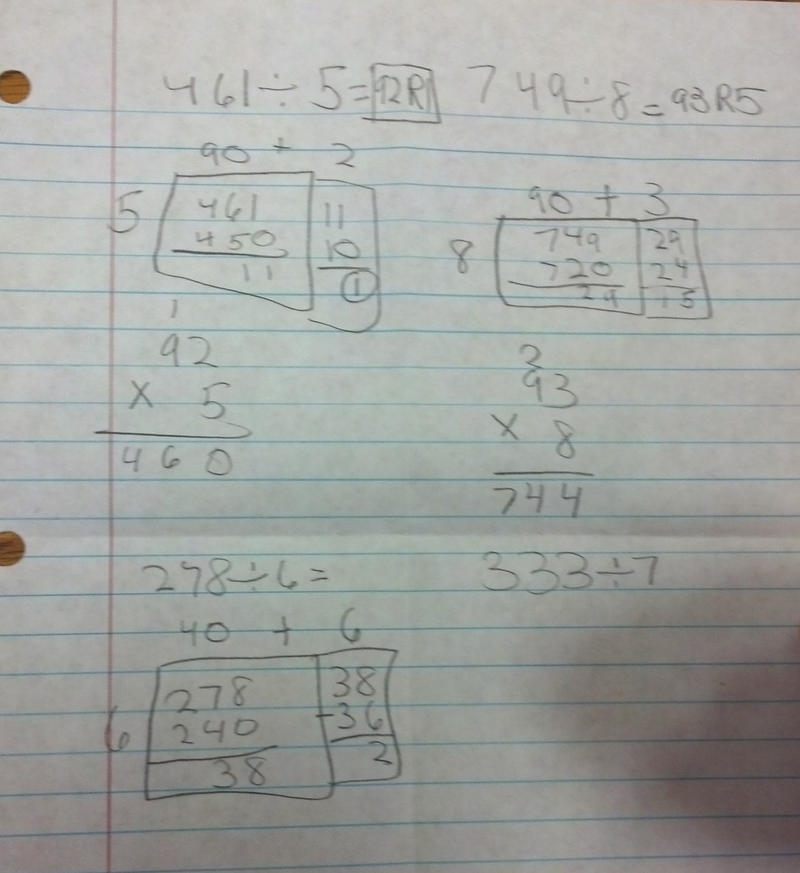 461÷5=92R1 749÷8=93R5
90 + 2
5
461 11
450 10
11 1
1
92
x 5
460
90 + 3
8
749 29
720 24
29 5
2
93
x 8
744
278÷6=
40 + 6
6
278 38
240 -36
38 2
333÷7